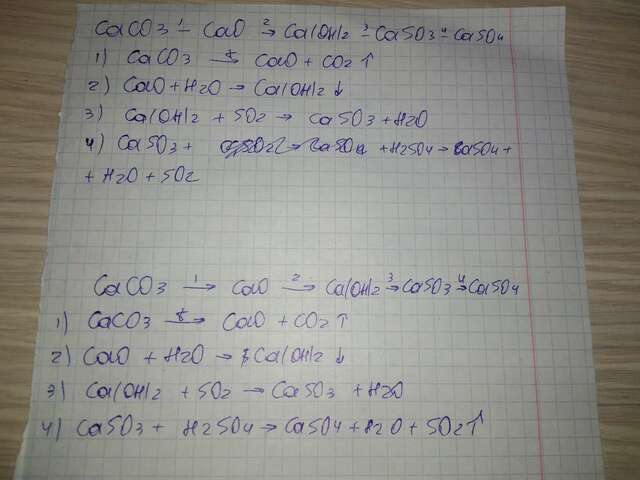 CaCO3 1— CaO 2→ Ca(OH)2 3— CaSO3 4— CaSO4
1) CaCO3 t→ CaO + CO2↑
2) CaO + H2O → Ca(OH)2↓
3) Ca(OH)2 + SO2 → CaSO3 + H2O
4) CaSO3 + + H2SO4 → CaSO4 +
+ H2O + SO2
CaCO3 1→ CaO 2→ Ca(OH)2 3→ CaSO3 4→ CaSO4
1) CaCO3 t→ CaO + CO2↑
2) CaO + H2O → Ca(OH)2↓
3) Ca(OH)2 + SO2 → CaSO3 + H2O
4) CaSO3 + H2SO4 → CaSO4 + H2O + SO2↑